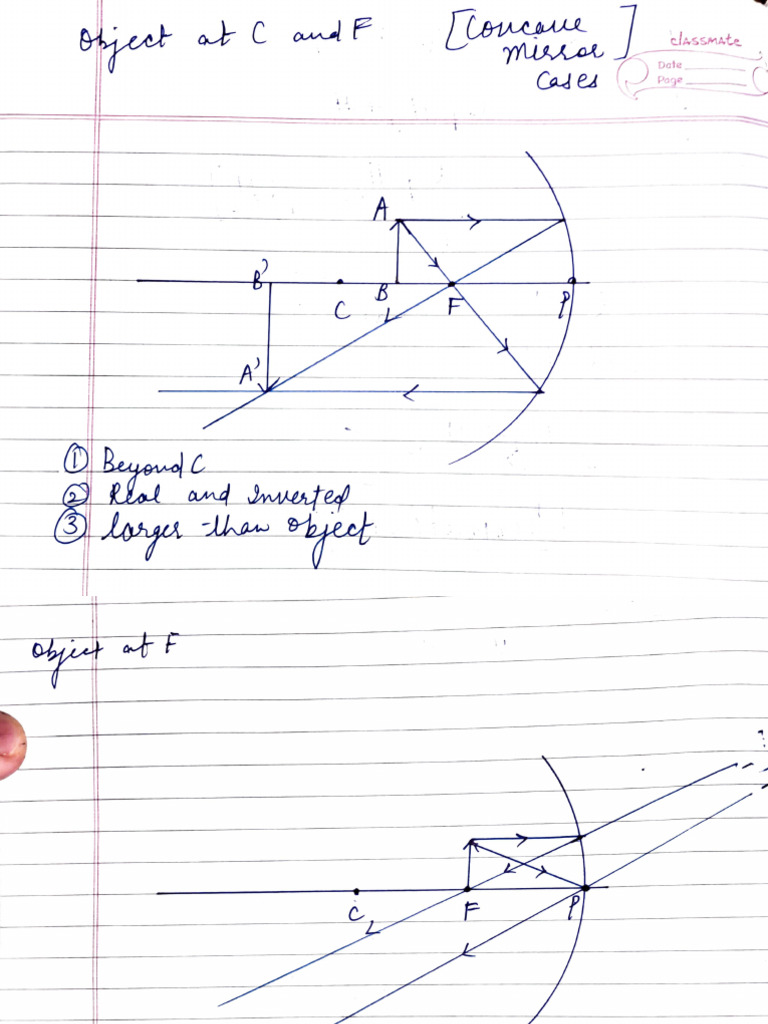 Object at C and F
[Concave
mirror
Cases]
classmate
Date
Page
A
B'
C
B
F
P
A'
① Beyond C
② Real and Inverted
③ larger than object
object at F
C
F
P